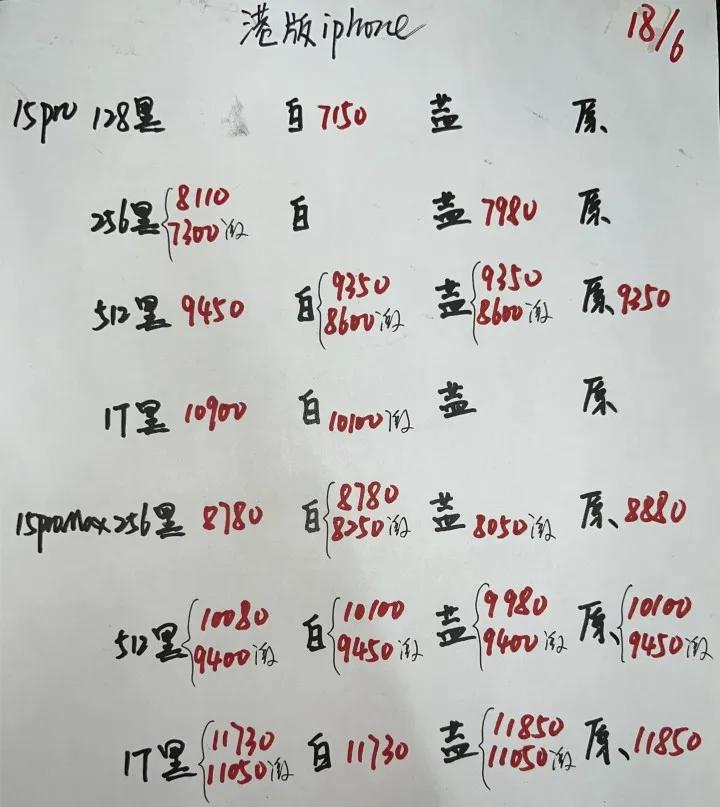 港版iphone 18/6
15pro 128黑 白 7150 蓝 原、
256黑 8110 7300激 白 蓝 7980 原、
512黑 9450 白 9350 8600激 蓝 9350 8600激 原、9350
1T黑 10900 白 10100激 蓝 原、
15promax 256黑 8780 白 8780 8250激 蓝 8050激 原、8880
512黑 10080 9400激 白 10100 9450激 蓝 9980 9400激 原、10100 9450激
1T黑 11730 11050激 白 11730 蓝 11850 11050激 原、11850